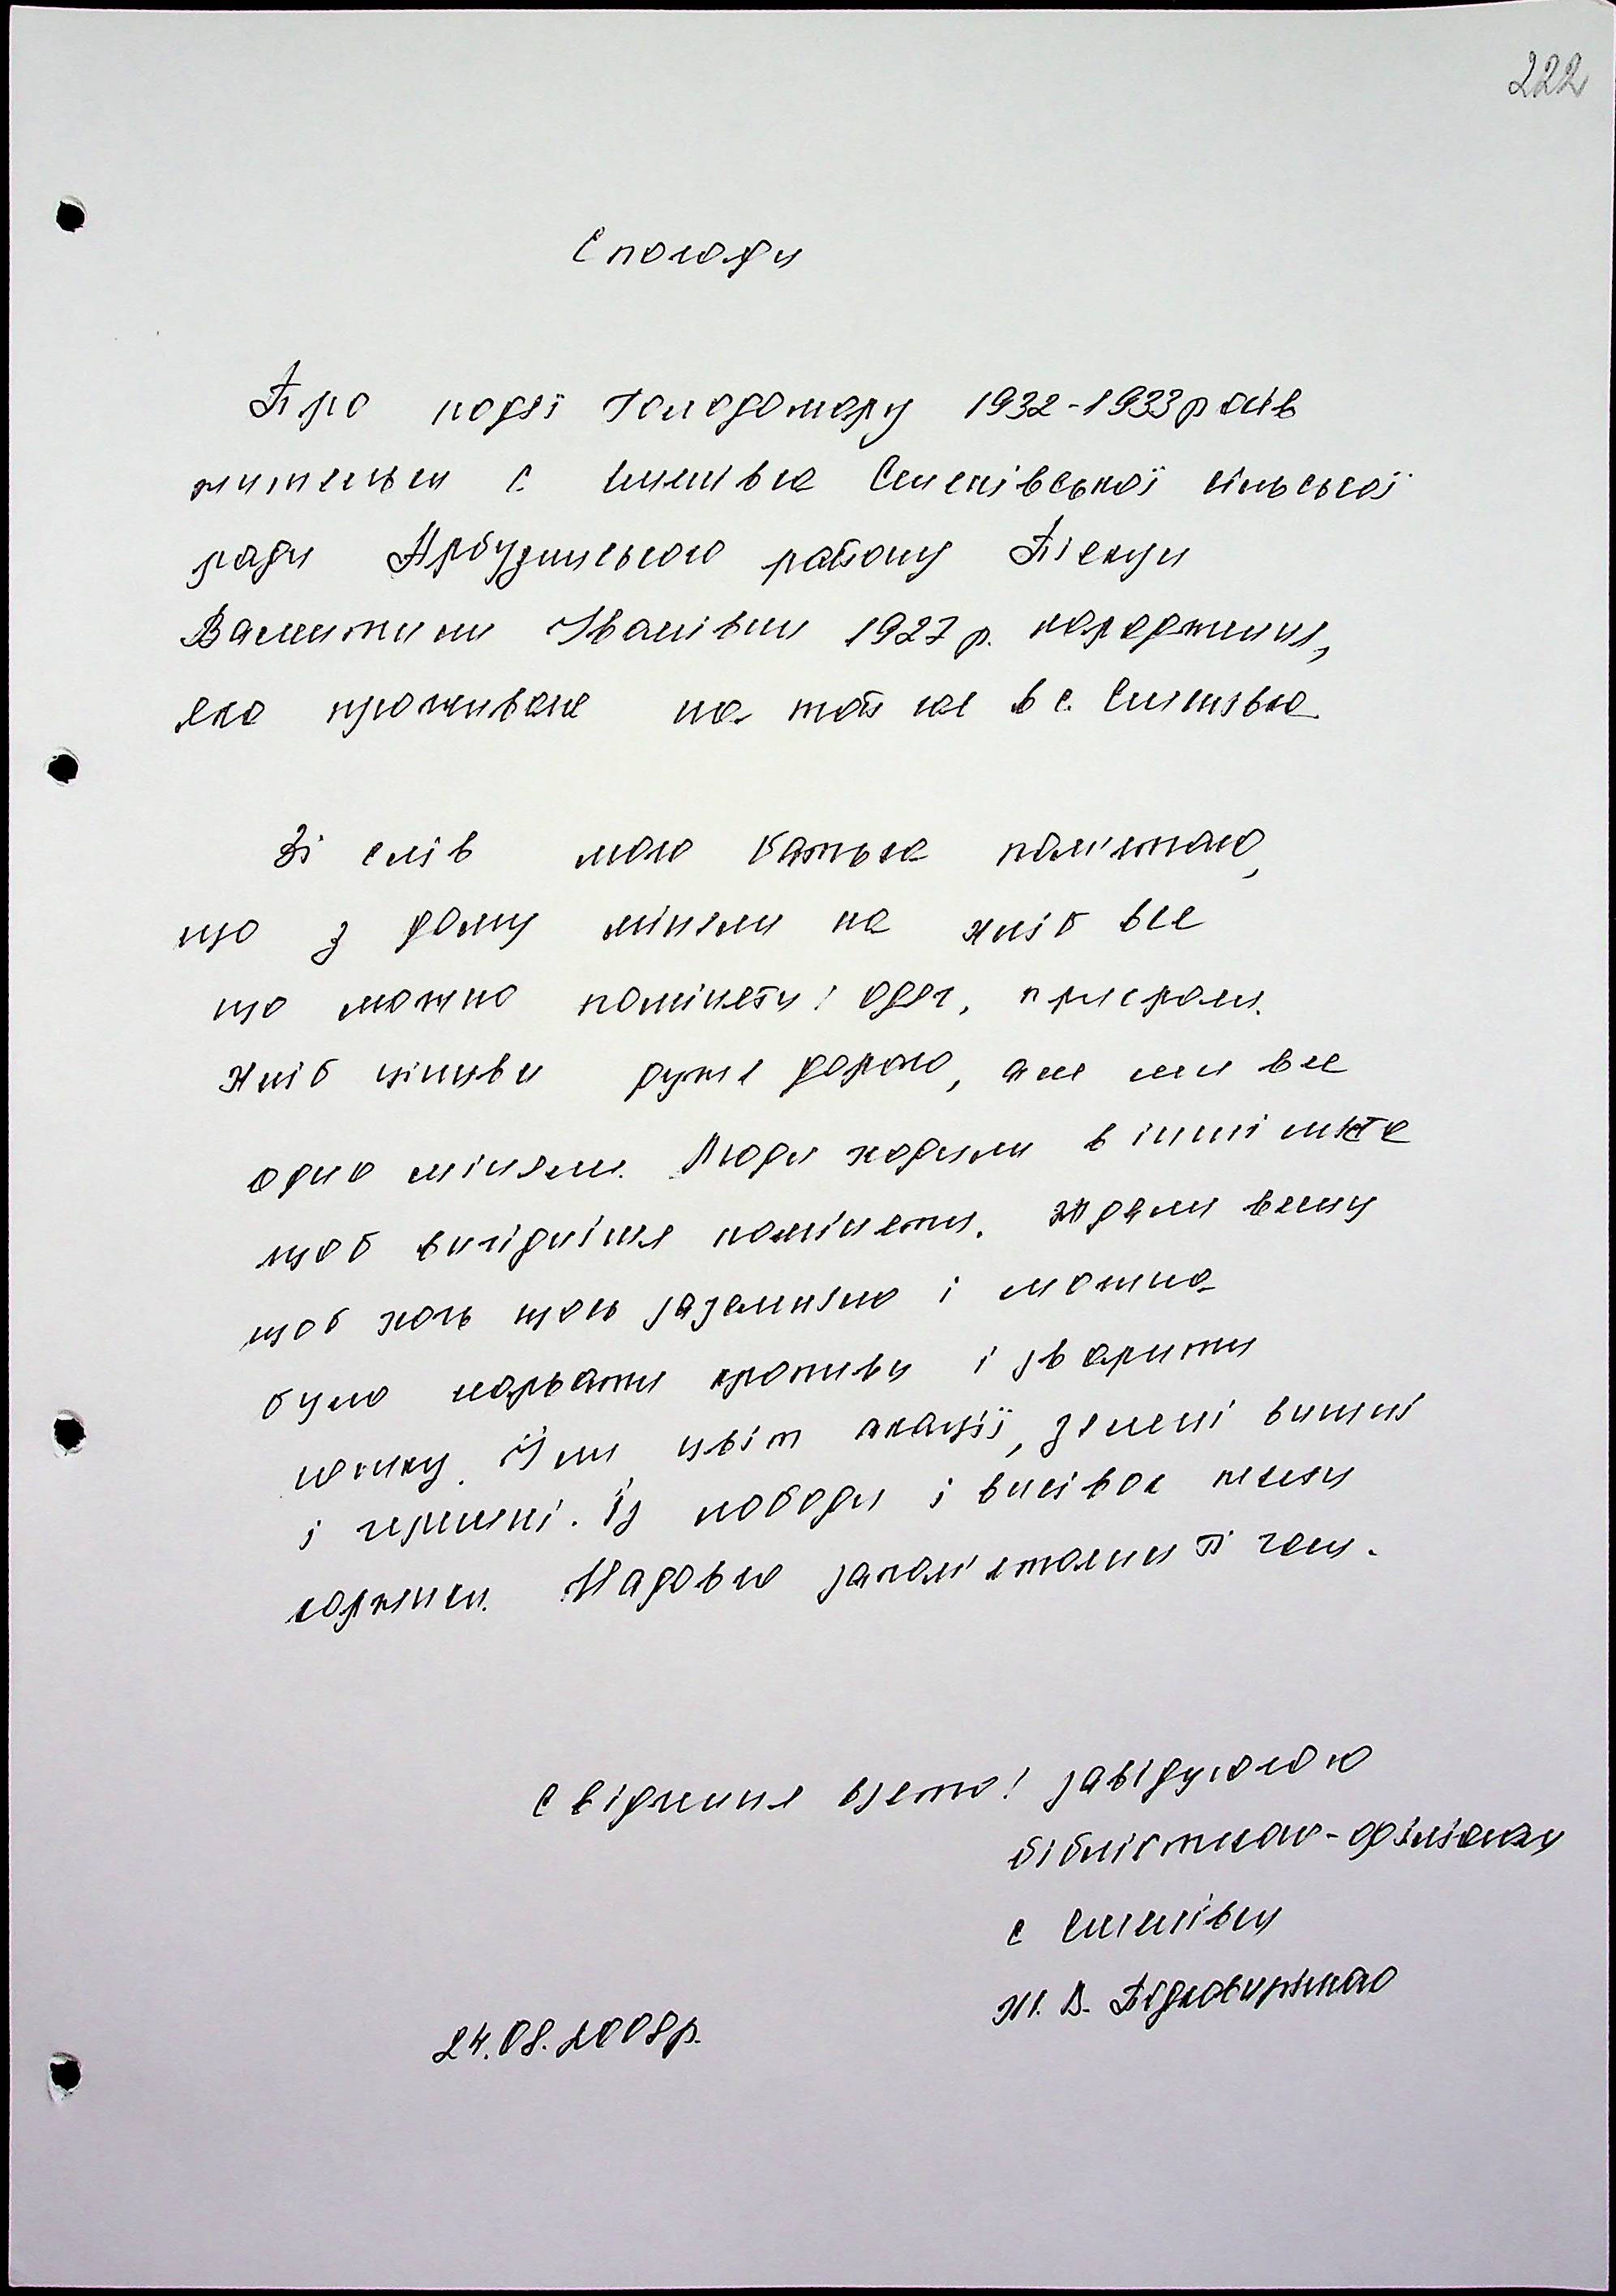 222
Спогади
Про події Голодомору 1932-1933 років
жительки с. Семенівка Семенівської сільської
ради Арбузинського району Пієкуи
Валентини Іванівни 1927 р. народження,
яка проживає на той час в с. Семенівка
Зі слів мого батька памʼятаю,
що з дому міняли на хліб все
що можно поміняти: одяг, прикраси.
Хліб ціниви дуже дорого, але ми все
одно міняли. Люди ходили в інші міста
щоб вигідніше поміняти. Ждали весну
щоб хоч щось зазеленіло і можна
було нарвати кропиви і зварити
юшку. Їли цвіт акації, зелені вишні
і черешні. Із лободи і висівок пекли
коржики. Надовго запамʼятались ті часи.
Свідчення взято: завідуючою
бібліотекою-філіалом
с Семенівки
24.08.2008р.